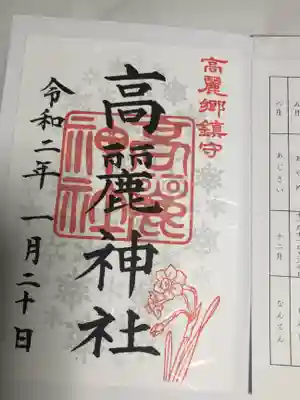 高麗郷鎮守
高麗神社
高麗
神社
令和二年 一月二十日
八月
あじさい
十二月
なんてん